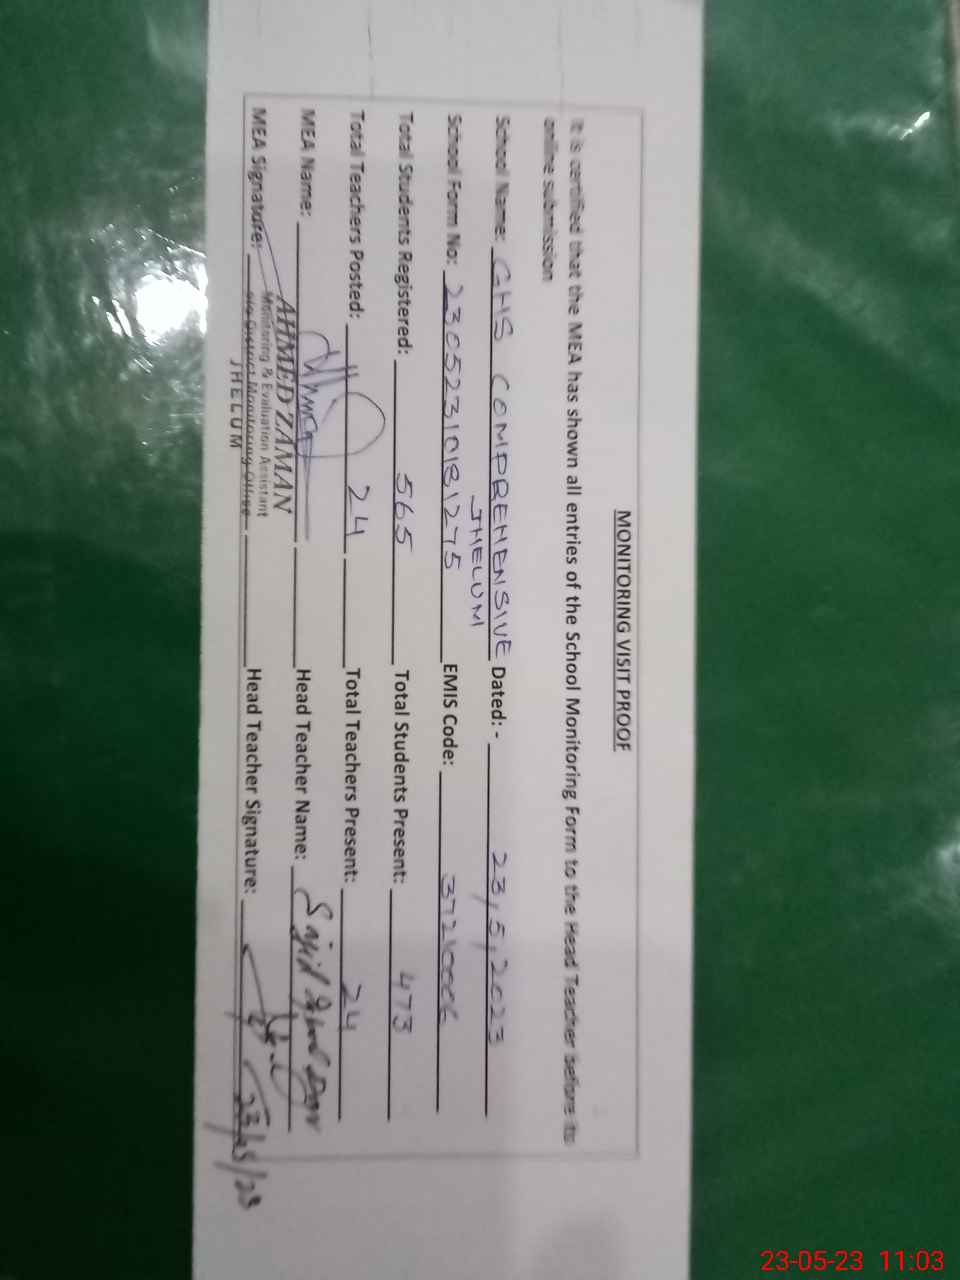 MONITORING VISIT PROOF
It is certified that the MEA has shown all entries of the School Monitoring Form to the Head Teacher before its
online submission
School Name: GHS COMPREHENSIVE Dated:- 23,5,2023
JHELUM
School Form No: 23052310181275 EMIS Code: 37210006
Total Students Registered: 565 Total Students Present: 473
Total Teachers Posted: 24 Total Teachers Present: 24
MEA Name: Head Teacher Name: Sajid
AHMED ZAMAN
Monitoring & Evaluation Assistant
MEA Signature: o/o District Monitoring Office Head Teacher Signature: 23/05/23
JHELUM
23-05-23 11:03